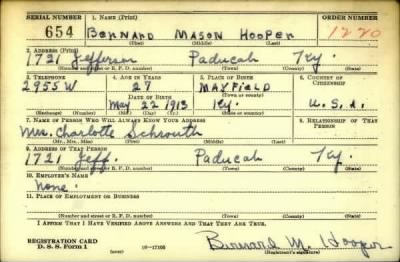 SERIAL NUMBER 1. NAME (Print) ORDER NUMBER
654 BERNARD MASON HOOPER 1270
(First) (Middle) (Last)
2. ADDRESS (Print)
1721 Jefferson Paducah Ky.
(Number and street or R. F. D. number) (Town) (County) (State)
3. TELEPHONE 4. AGE IN YEARS 5. PLACE OF BIRTH 6. COUNTRY OF CITIZENSHIP
2955W 27 MAYFIELD
DATE OF BIRTH (Town or county)
May 22 1913 Ky. U.S.A.
(Exchange) (Number) (Mo.) (Day) (Yr.) (State or country)
7. NAME OF PERSON WHO WILL ALWAYS KNOW YOUR ADDRESS 8. RELATIONSHIP OF THAT PERSON
Mrs. Charlotte Schrouth
(Mr., Mrs., Miss) (First) (Middle) (Last)
9. ADDRESS OF THAT PERSON
1721 Jeff. Paducah Ky.
(Number and street or R. F. D. number) (Town) (County) (State)
10. EMPLOYER'S NAME
None.
11. PLACE OF EMPLOYMENT OR BUSINESS
(Number and street or R. F. D. number) (Town) (County) (State)
I AFFIRM THAT I HAVE VERIFIED ABOVE ANSWERS AND THAT THEY ARE TRUE.
REGISTRATION CARD
D. S. S. Form 1 (over) Bernard M. Hooper
(Registrant's signature)